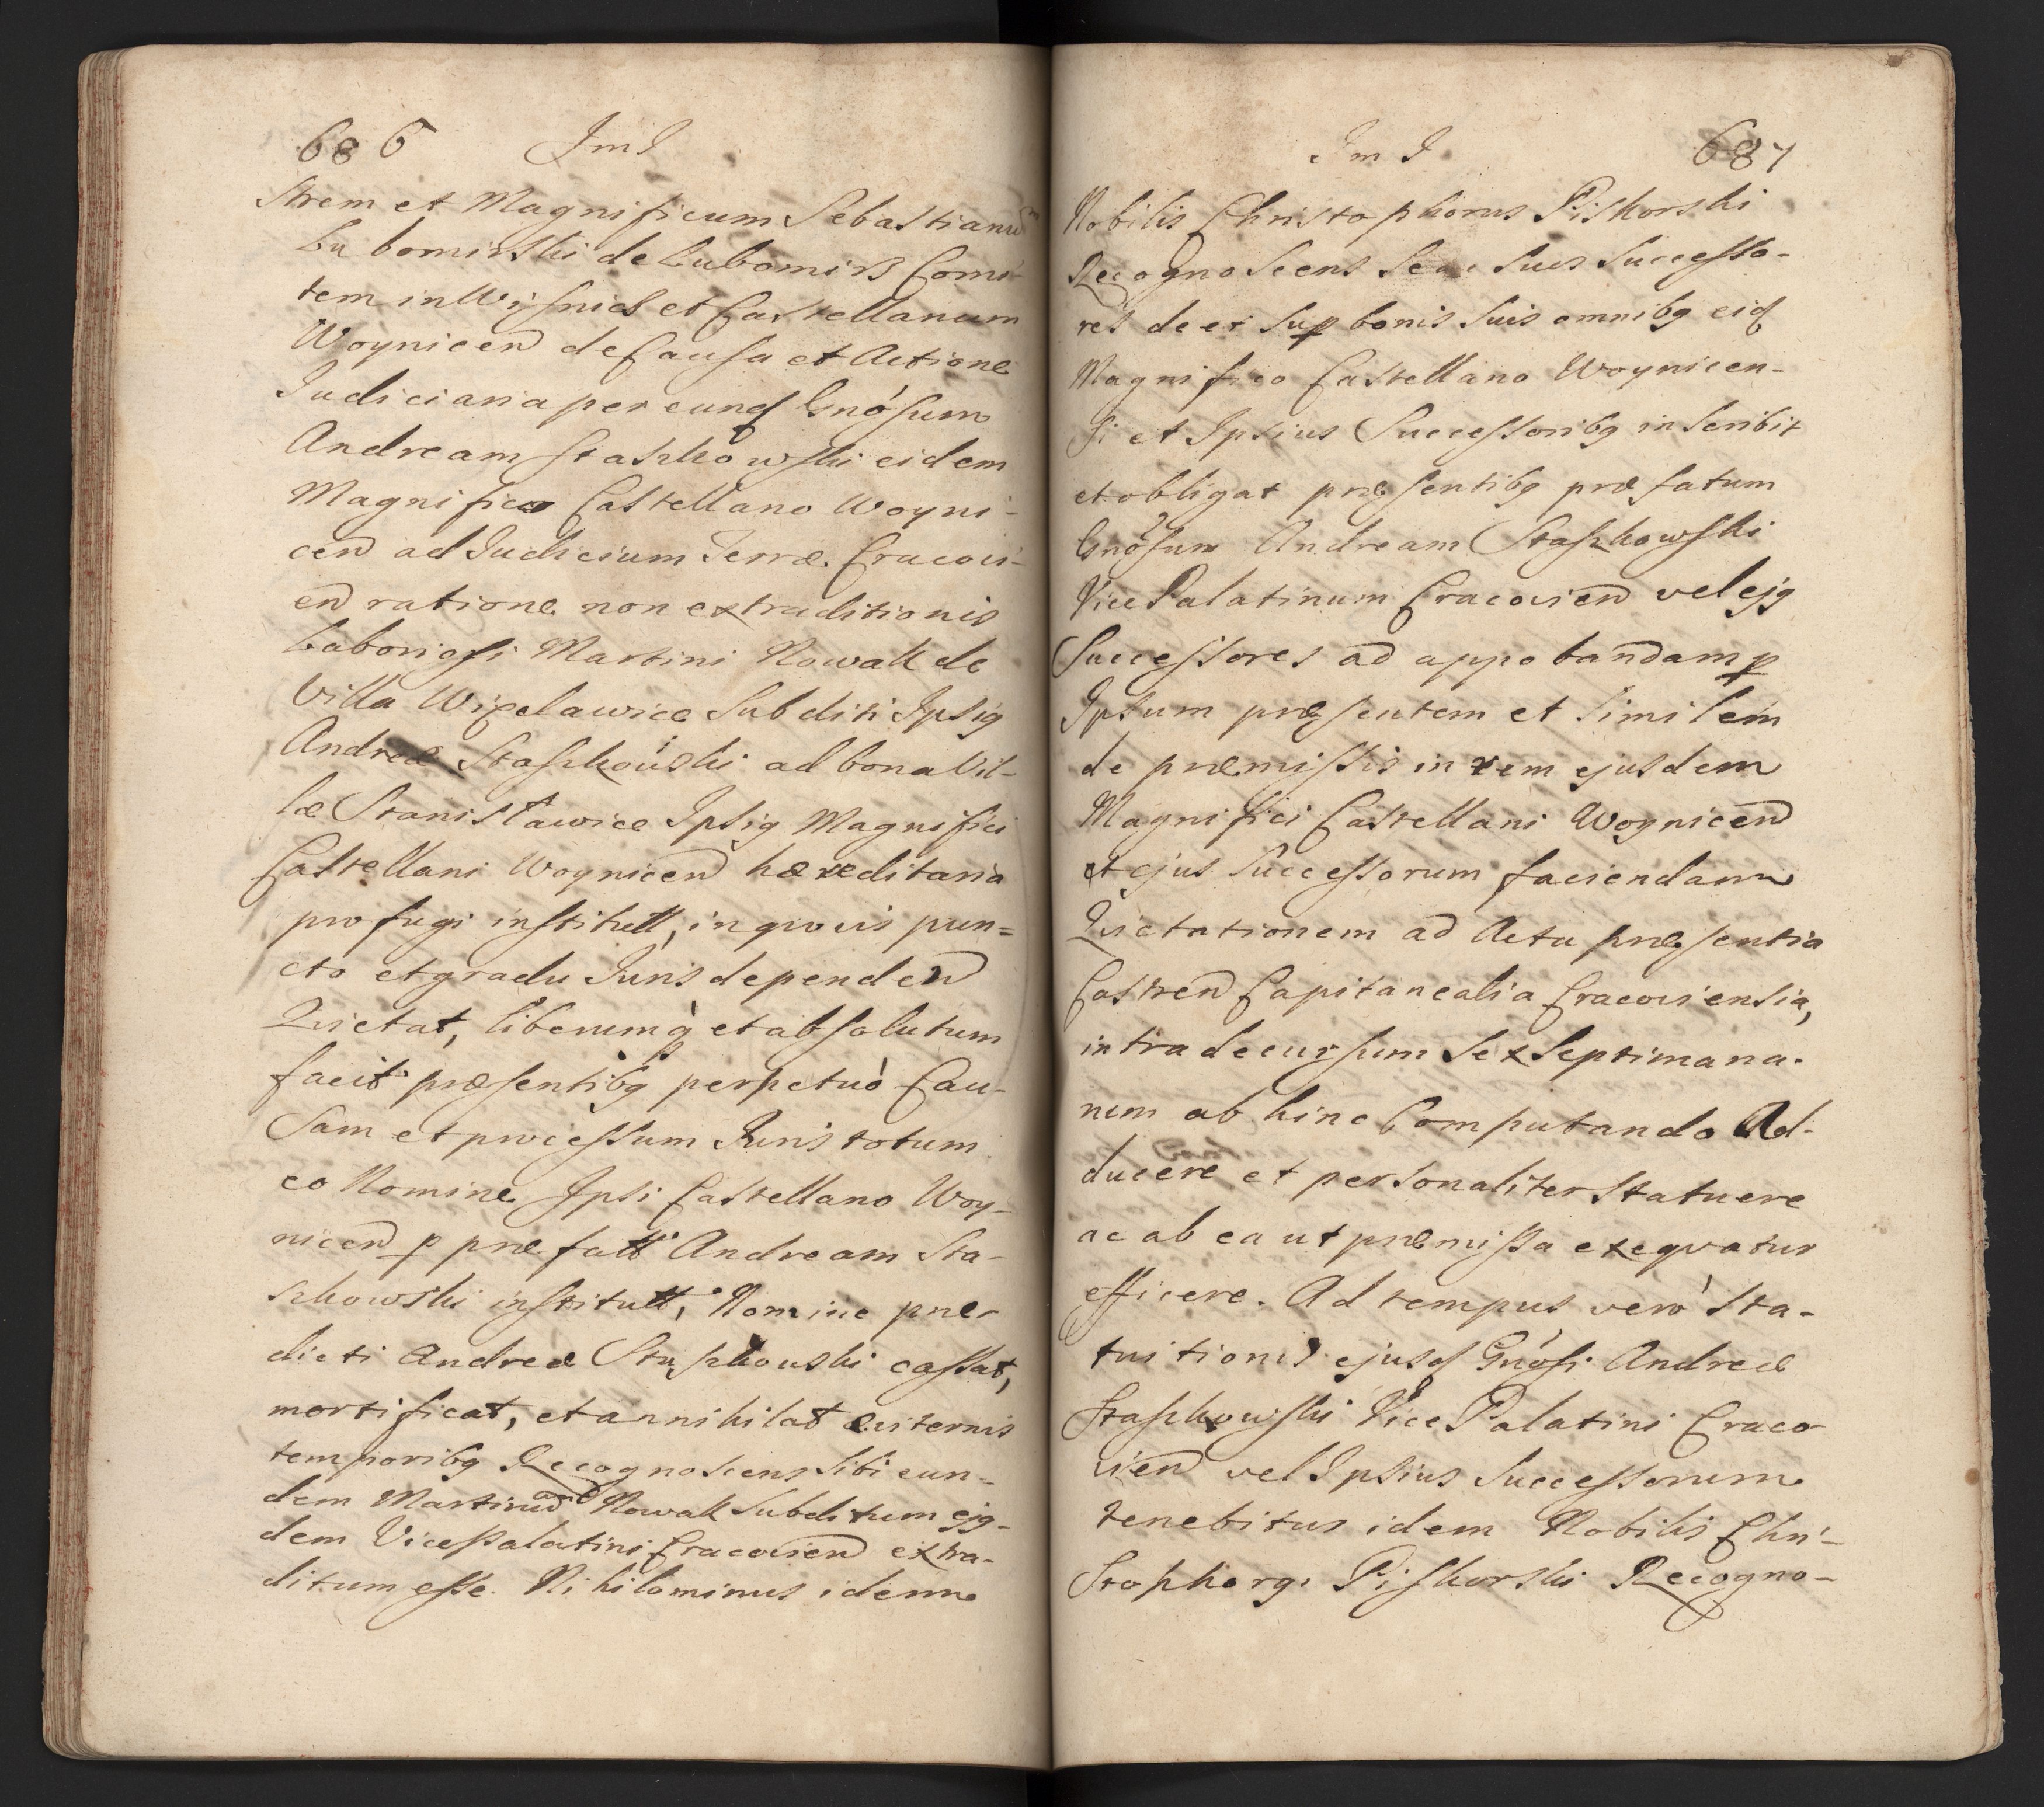 686 JmJ
strem et Magnificum Sebastianu͂
Lubomirski de Lubomirz Comi-
tem in Wiſnicz et Caſtellanum
Woynicen̄ de Cauſa et Actione
Judiciaria per eundꝫ Gnōſum
Andream Staſzkowſki eidem
Magnifico Castellano Woyni-
cen̄ ad Judicium Terræ Cracovi-
en̄ ratione non extraditionis
Laborioſi Martini Nowak de
Villa Więcławice Subditi Ipſiꝯ
Andreæ Staſzkowski ad bona Vil-
læ Stanisławice Ipsiꝯ Magnifici
Castellani Woynicen̄ hæreditaria
profugi inſtitutt, in quovis pun=
cto et gradu Juris dependen̄
Quietat, liberumq̀ et abſolutum
facit præſentibꝯ perpetuò Cau-
sam et proceſſum Juris totum
eo Nomine Ipsi Castellano Woy-
nicen̄ ꝑ præfatt Andream Sta-
szkowski inſtitutt, Nomine præ-
dicti Andreæ Staſzkowski caſſat,
mortificat, et annihilat æviternis
temporibꝯ Recognoscens sibi eun-
dem Martinum Nowak Subditum ejꝯ-
dem Vicepalatini Cracovien̄ extra-
ditum eſſe. Nihilominus idem
Jm J 687
Nobilis Christophorus Piskorski
Recognoscens se ac suos Succeſſo-
res de et suꝑ bonis suis omnibꝯ eidꝫ
Magnifico Castellano Woynicen-
ſi et Ipsius Succeſſoribꝯ inscribit
et obligat præſentibꝯ præfatum
Gnōſum Andream Staſzkowſki
Vice Palatinum Cracovien̄ vel ejꝯ
Succeſſores ad appobandam ꝑ
Ipsum præſentem et similem
de præmiſſis in rem ejusdem
Magnifici Castellani Woynicen̄
et ejus Succeſſorum faciendam
Quietationem ad Acta præſentia
Castren̄ Capitanealia Cracoviensia,
intra decurſum sex septimana-
rum ab hinc Computando Ad-
ducere et personaliter statuere
ac ab ea ut præmiſſa exequatur
efficere. Ad tempus verò Sta-
tuitionis ejusdꝫ Gnōſi Andreæ
Staſzkowſki Vice Palatini Craco-
vien̄ vel Ipsius Succeſſorum
tenebitur idem Nobilis Chri-
stophorꝯ Piſkorski Recogno-